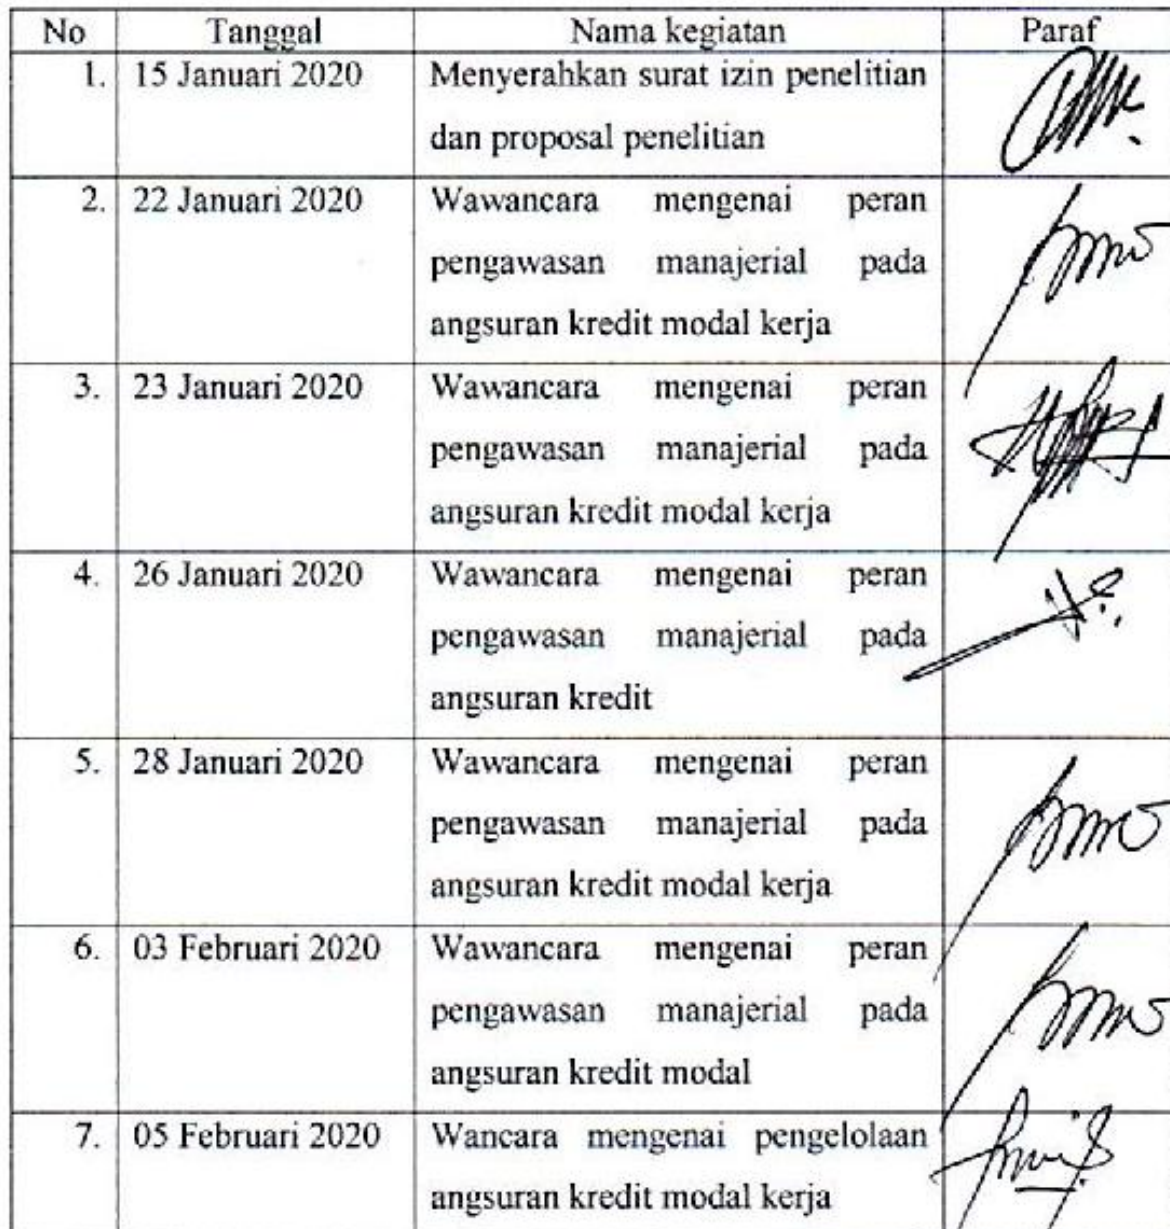 No Tanggal Nama kegiatan Paraf
1. 15 Januari 2020 Menyerahkan surat izin penelitian
dan proposal penelitian
2. 22 Januari 2020 Wawancara mengenai peran
pengawasan manajerial pada
angsuran kredit modal kerja
3. 23 Januari 2020 Wawancara mengenai peran
pengawasan manajerial pada
angsuran kredit modal kerja
4. 26 Januari 2020 Wawancara mengenai peran
pengawasan manajerial pada
angsuran kredit
5. 28 Januari 2020 Wawancara mengenai peran
pengawasan manajerial pada
angsuran kredit modal kerja
6. 03 Februari 2020 Wawancara mengenai peran
pengawasan manajerial pada
angsuran kredit modal
7. 05 Februari 2020 Wancara mengenai pengelolaan
angsuran kredit modal kerja